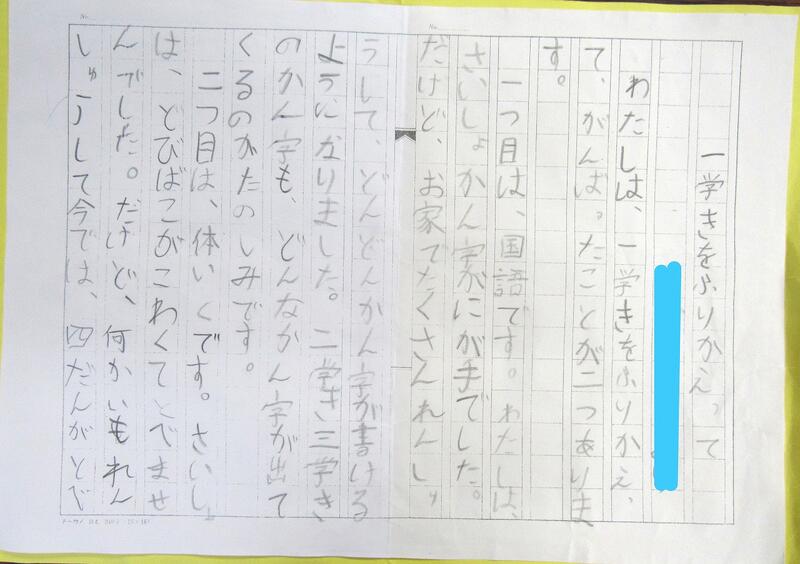 一学きをふりかえって
わたしは、一学きをふりかえっ
て、がんばったことが二つありま
す。
一つ目は、国語です。わたしは、
さいしょ、かん字がにが手でした。
だけど、お家でたくさんれんしゅ
うして、どんどんかん字が書ける
ようになりました。二学き三学き
のかん字も、どんなかん字が出て
くるのかたのしみです。
二つ目は、体いくです。さいしょ
は、とびばこがこわくてとべませ
んでした。だけど、何かいもれん
しゅうして今では、四だんがとべ